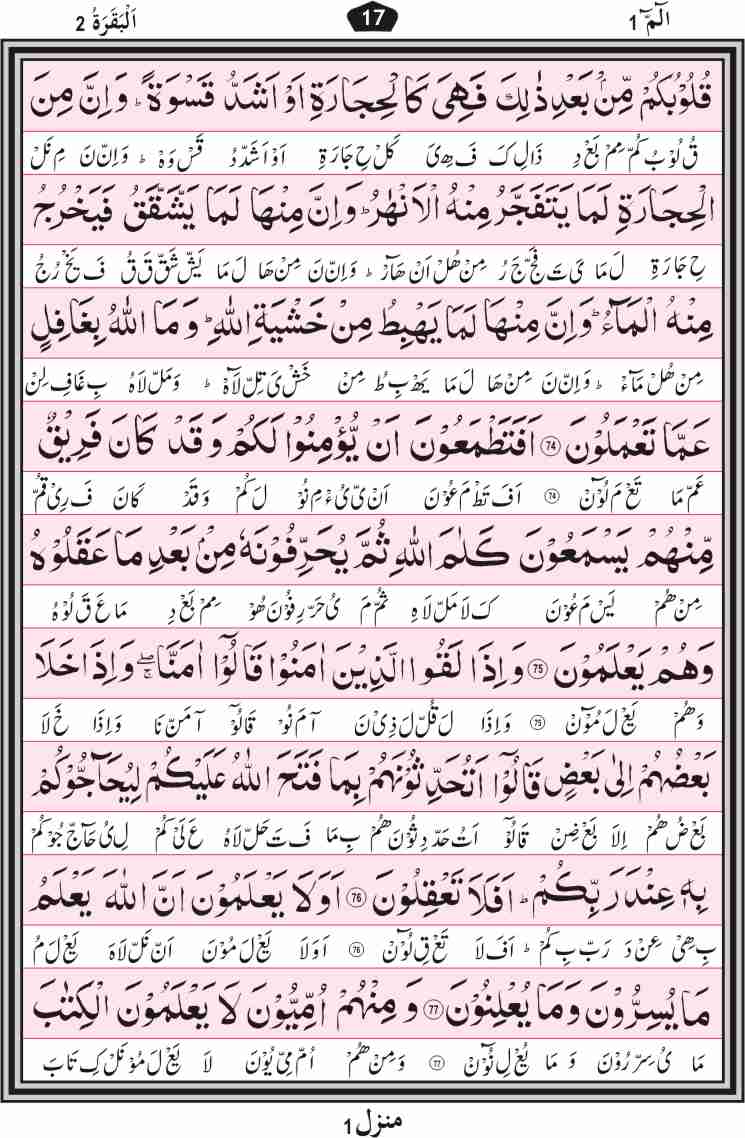 الٓمّٓ 1
17
اَلْبَقَرَةُ 2
قُلُوْبُكُمْ مِّنْۢ بَعْدِ ذٰلِكَ فَهِیَ كَالْحِجَارَةِ اَوْ اَشَدُّ قَسْوَةً ؕ وَ اِنَّ مِنَ
قُ لُوْبُ كُمْ مِمْ بَعْ دِ ذَالِ كَ فَ هِیَ كَلْ حِ جَارَةِ اَوْ اَشَدْ دُ قَسْ وَهْ ؕ وَ اِنْ نَ مِ نَلْ
الْحِجَارَةِ لَمَا یَتَفَجَّرُ مِنْهُ الْاَنْهٰرُ ؕ وَ اِنَّ مِنْهَا لَمَا یَشَّقَّقُ فَیَخْرُجُ
حِ جَارَةِ لَ مَا یَ تَ فَجْ جَ رُ مِنْ هُلْ اَنْ هَارْ ؕ وَ اِنْ نَ مِنْ هَا لَ مَا یَشْ شَقْ قَ قُ فَ یَخْ رُجُ
مِنْهُ الْمَآءُ ؕ وَ اِنَّ مِنْهَا لَمَا یَهْبِطُ مِنْ خَشْیَةِ اللّٰهِ ؕ وَ مَا اللّٰهُ بِغَافِلٍ
مِنْ هُلْ مَاءْ ؕ وَ اِنْ نَ مِنْ هَا لَ مَا یَهْ بِ طُ مِنْ خَشْ یَ تِلْ لَاهْ ؕ وَ مَلْ لَاهُ بِ غَافِ لِنْ
عَمَّا تَعْمَلُوْنَ ﴿74﴾ اَفَتَطْمَعُوْنَ اَنْ یُّؤْمِنُوْا لَكُمْ وَ قَدْ كَانَ فَرِیْقٌ
عَمْ مَا تَعْ مَ لُوْنْ ﴿74﴾ اَفَ تَطْ مَ عُوْنَ اَنْ یُ یُءْ مِ نُوْ لَ كُمْ وَ قَدْ كَانَ فَ رِیْ قُمْ
مِّنْهُمْ یَسْمَعُوْنَ كَلٰمَ اللّٰهِ ثُمَّ یُحَرِّفُوْنَهٗ مِنْۢ بَعْدِ مَا عَقَلُوْهُ
مِنْ هُمْ یَسْ مَ عُوْنَ كَ لَا مَلْ لَاهِ ثُمْ مَ یُ حَرْ رِ فُوْنَ هُوْ مِمْ بَعْ دِ مَا عَ قَ لُوْهُ
وَهُمْ یَعْلَمُوْنَ ﴿75﴾ وَ اِذَا لَقُوا الَّذِیْنَ اٰمَنُوْا قَالُوْۤا اٰمَنَّا ۖۚ وَ اِذَا خَلَا
وَ هُمْ یَعْ لَ مُوْنْ ﴿75﴾ وَ اِذَا لَ قُلْ لَ ذِیْ نَ آمَ نُوْ قَالُوْۤ آمَنْ نَا وَ اِذَا خَ لَا
بَعْضُهُمْ اِلٰى بَعْضٍ قَالُوْۤا اَتُحَدِّثُوْنَهُمْ بِمَا فَتَحَ اللّٰهُ عَلَیْكُمْ لِیُحَآجُّوْكُمْ
بَعْ ضُ هُمْ اِلَا بَعْ ضِنْ قَالُوْۤ اَتُ حَدْ دِثُوْنَ هُمْ بِ مَا فَ تَ حَلْ لَاهُ عَ لَیْ كُمْ لِ یُ حَآجْ جُوْ كُمْ
بِهٖ عِنْدَ رَبِّكُمْ ؕ اَفَلَا تَعْقِلُوْنَ ﴿76﴾ اَوَلَا یَعْلَمُوْنَ اَنَّ اللّٰهَ یَعْلَمُ
بِ هِیْ عِنْ دَ رَبْ بِ كُمْ ؕ اَفَ لَا تَعْ قِ لُوْنْ ﴿76﴾ اَوَ لَا یَعْ لَ مُوْنَ اَنْ نَلْ لَاهَ یَعْ لَ مُ
مَا یُسِرُّوْنَ وَ مَا یُعْلِنُوْنَ ﴿77﴾ وَ مِنْهُمْ اُمِّیُّوْنَ لَا یَعْلَمُوْنَ الْكِتٰبَ
مَا یُ سِرْ رُوْنَ وَ مَا یُعْ لِ نُوْنْ ﴿77﴾ وَ مِنْ هُمْ اُمْ مِیْ یُوْنَ لَا یَعْ لَ مُوْ نَلْ كِ تَابَ
منزل 1